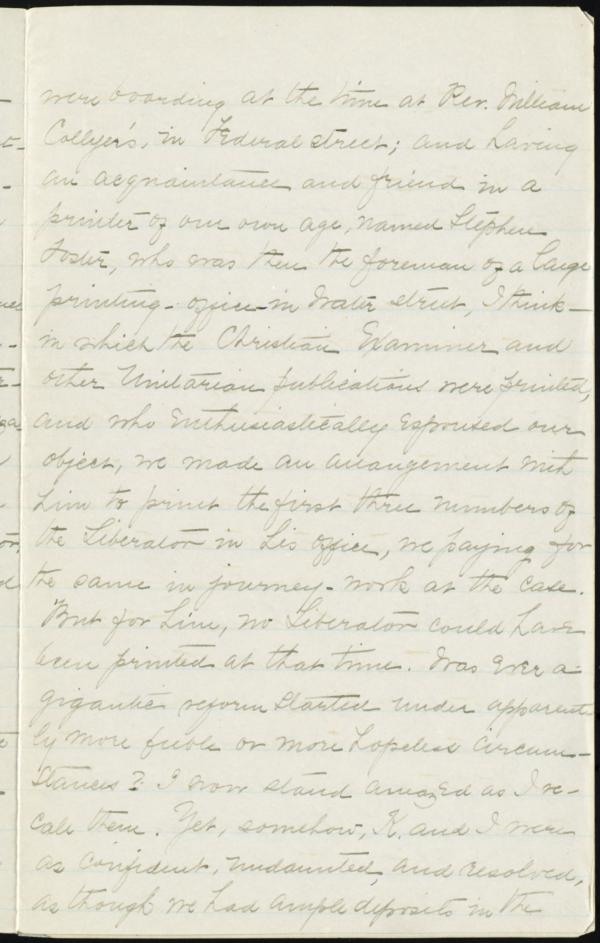 were boarding at the time at Rev. William
Collyer's, in Federal street; and having
an acquaintance and friend in a
printer of our own age, named Stephen
Foster, who was then the foreman of a large
printing-office-in Water street, I think-
in which the Christian Examiner and
other Unitarian publications were printed,
and who enthusiastically espoused our
object, we made an arrangement with
him to print the first three numbers of
the Liberator in his office, we paying for
the same in journey-work at the case.
But for him, no Liberator could have
been printed at that time. Was ever a
gigantic reform started under apparent-
ly more feeble or more hopeless circum-
stances? I now stand amazed as I re-
call them. Yet, somehow, K. and I were
as confident, undaunted, and resolved,
as though we had ample deposits in the